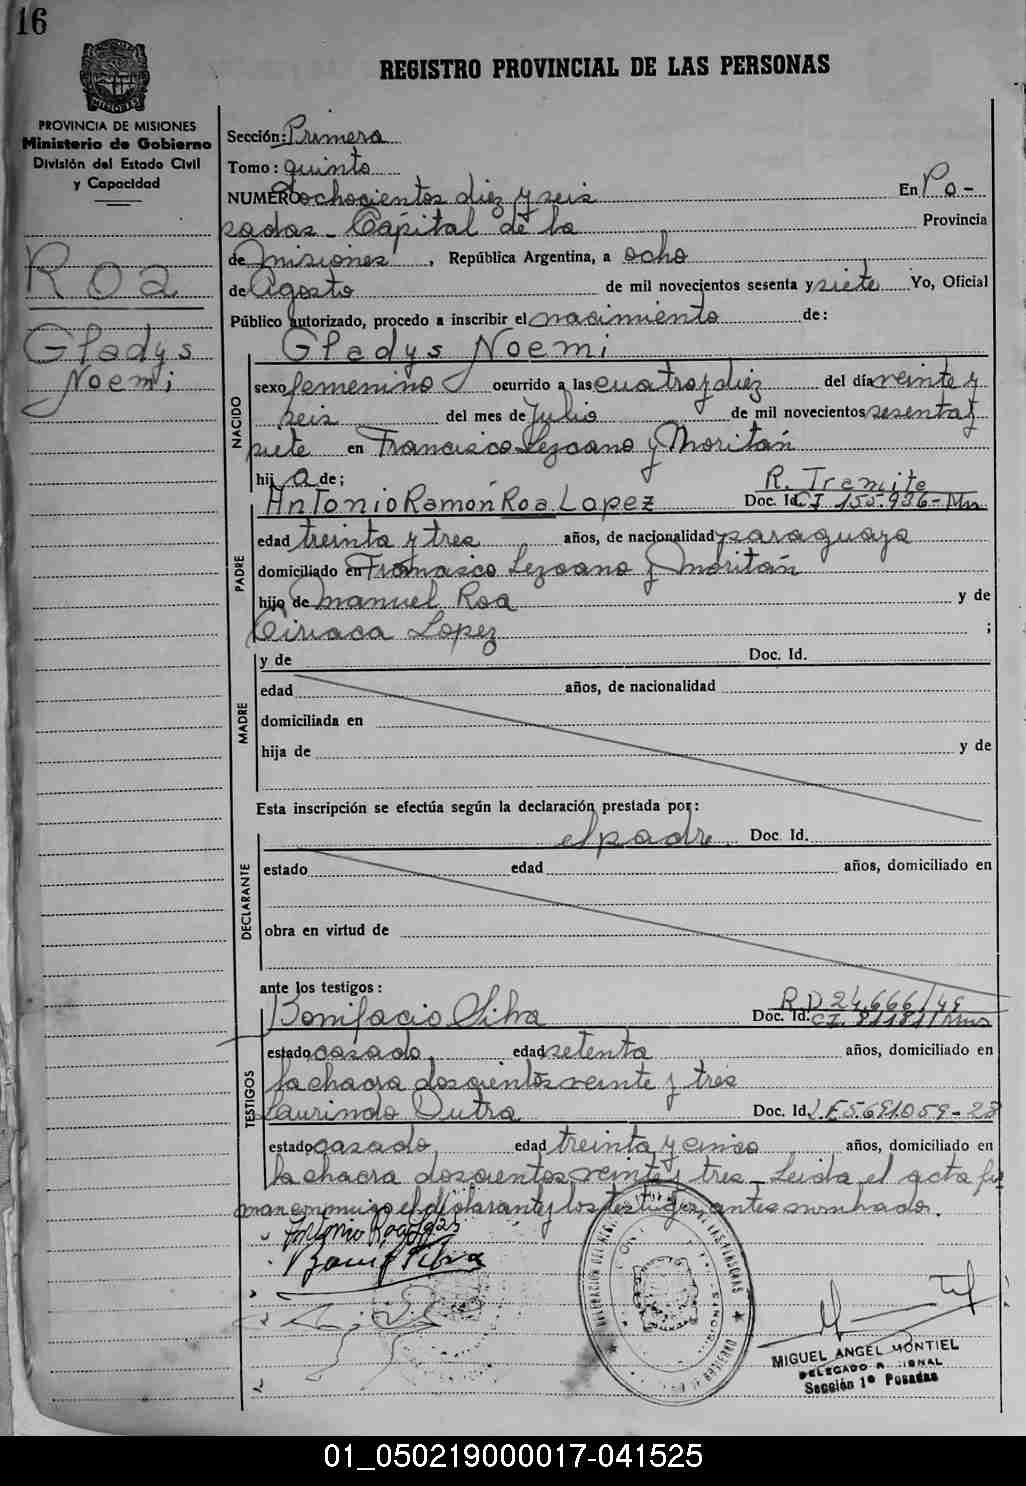 16
REGISTRO PROVINCIAL DE LAS PERSONAS
PROVINCIA DE MISIONES
Ministerio de Gobierno
División del Estado Civil
y Capacidad
Roa
Gladys
Noemi
Sección: Primera
Tomo: quinto
NUMERO ochocientos diez y seis En Po-
sadas - Capital de la Provincia
de Misiones, República Argentina, a ocho
de Agosto de mil novecientos sesenta y siete Yo, Oficial
Público autorizado, procedo a inscribir el nacimiento de:
Gladys Noemi
NACIDO
sexo femenino ocurrido a las cuatro y diez del día veinte y
seis del mes de Julio de mil novecientos sesenta y
siete en Francisco Lezcano y Moritán
hija de;
R. Tramite
Antonio Ramón Roa Lopez Doc. Id. CI 155.936-Mns
PADRE
edad treinta y tres años, de nacionalidad paraguaya
domiciliado en Francisco Lezcano y Moritán
hijo de Manuel Roa y de
Ciriaca Lopez ;
y de Doc. Id.
MADRE
edad años, de nacionalidad
domiciliada en
hija de y de
Esta inscripción se efectúa según la declaración prestada por:
el padre. Doc. Id.
DECLARANTE
estado edad años, domiciliado en
obra en virtud de
ante los testigos:
R.D 24.666/49
Bonifacio Silva Doc. Id. CI. 811811 Mns
TESTIGOS
estado casado, edad setenta años, domiciliado en
la chacra doscientos veinte y tres
Laurindo Dutra Doc. Id. L.E 5.691.059-23
estado casado, edad treinta y cinco años, domiciliado en
la chacra doscientos veinte y tres - Leida el acta fir
man conmigo el declarante y los testigos antes nombrado.
Antonio Roa
Bonif Silva
MIGUEL ANGEL MONTIEL
DELEGADO
Sección 1º Posadas
01_050219000017-041525